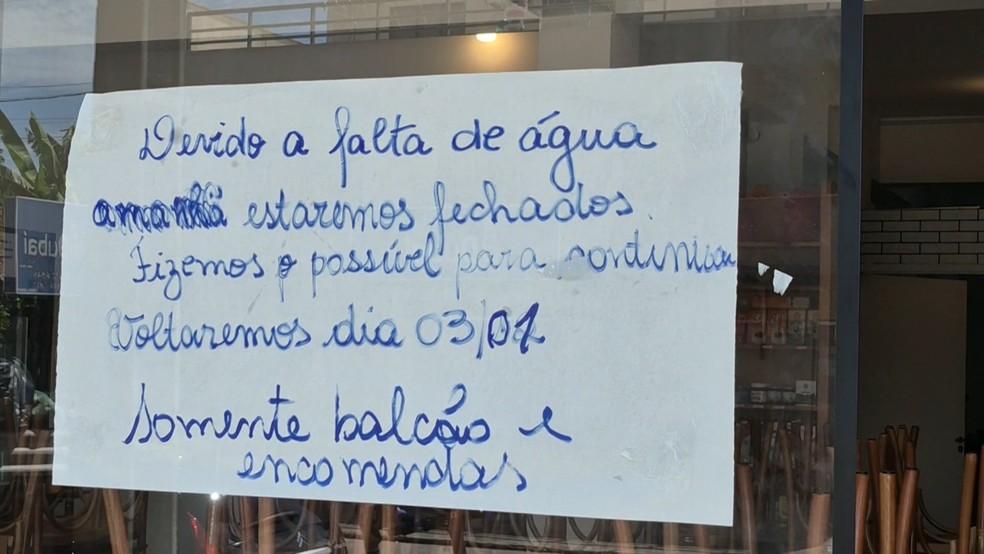 Devido a falta de água
estaremos fechados.
Fizemos o possível para continuar
Voltaremos dia 03/01
Somente balcão e
encomendas
ubai